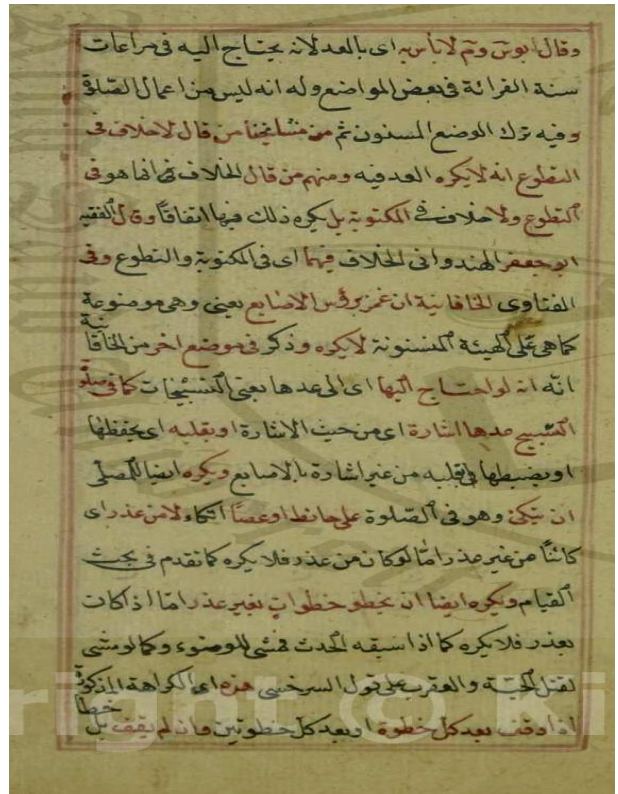 وقال ابو س وم لا بأس به اى بالعد لانه يحتاج اليه فى مراعات
سنة القرائة فى بعض المواضع وله انه ليس من اعمال الصلوة
وفيه ترك الوضع المسنون ثم من مشايخنا من قال لا خلاف فى
التطوع انه لا يكره العد فيه ومنهم من قال الخلاف فى انما هو فى
التطوع ولا خلاف فى المكتوبة بل يكره ذلك فيها اتفاقا وقال الفقيه
ابو جعفر الهندوانى الخلاف فيهما اى فى المكتوبة والتطوع وفى
الفتاوى الخاقانية ان غمز برؤس الاصابع يعنى وهى موضوعة
كما هى على الهيئة المسنونة لا يكره وذكر فى موضع اخر من الخاقا
نية
انه ان لو احتاج اليها اى الى عدها يعنى التسبيحات كما فى صلوة
التسبيح عدها اشارة اى من حيث الاشارة او بقلبه اى يحفظها
او يضبطها بقلبه من غير اشارة بالاصابع ويكره ايضا للمصلى
ان يتكئ وهو فى الصلوة على حائط او عصا اتكاء لا من عذر اى
كائنا من غير عذر امّا لو كان من عذر فلا يكره كما تقدم فى بحث
القيام ويكره ايضا ان يخطو خطوات بغير عذر امّا اذا كان
بعذر فلا يكره كما اذا سبقه الحدث فمشى للوضوء وكما لو مشى
لقتل الحية والعقرب على قول السرخسى هذه اى الكراهة المذكورة
اذا وقف بعد كل خطوة او بعد كل خطوتين وان لم يقف بل
خطا
right © Ki